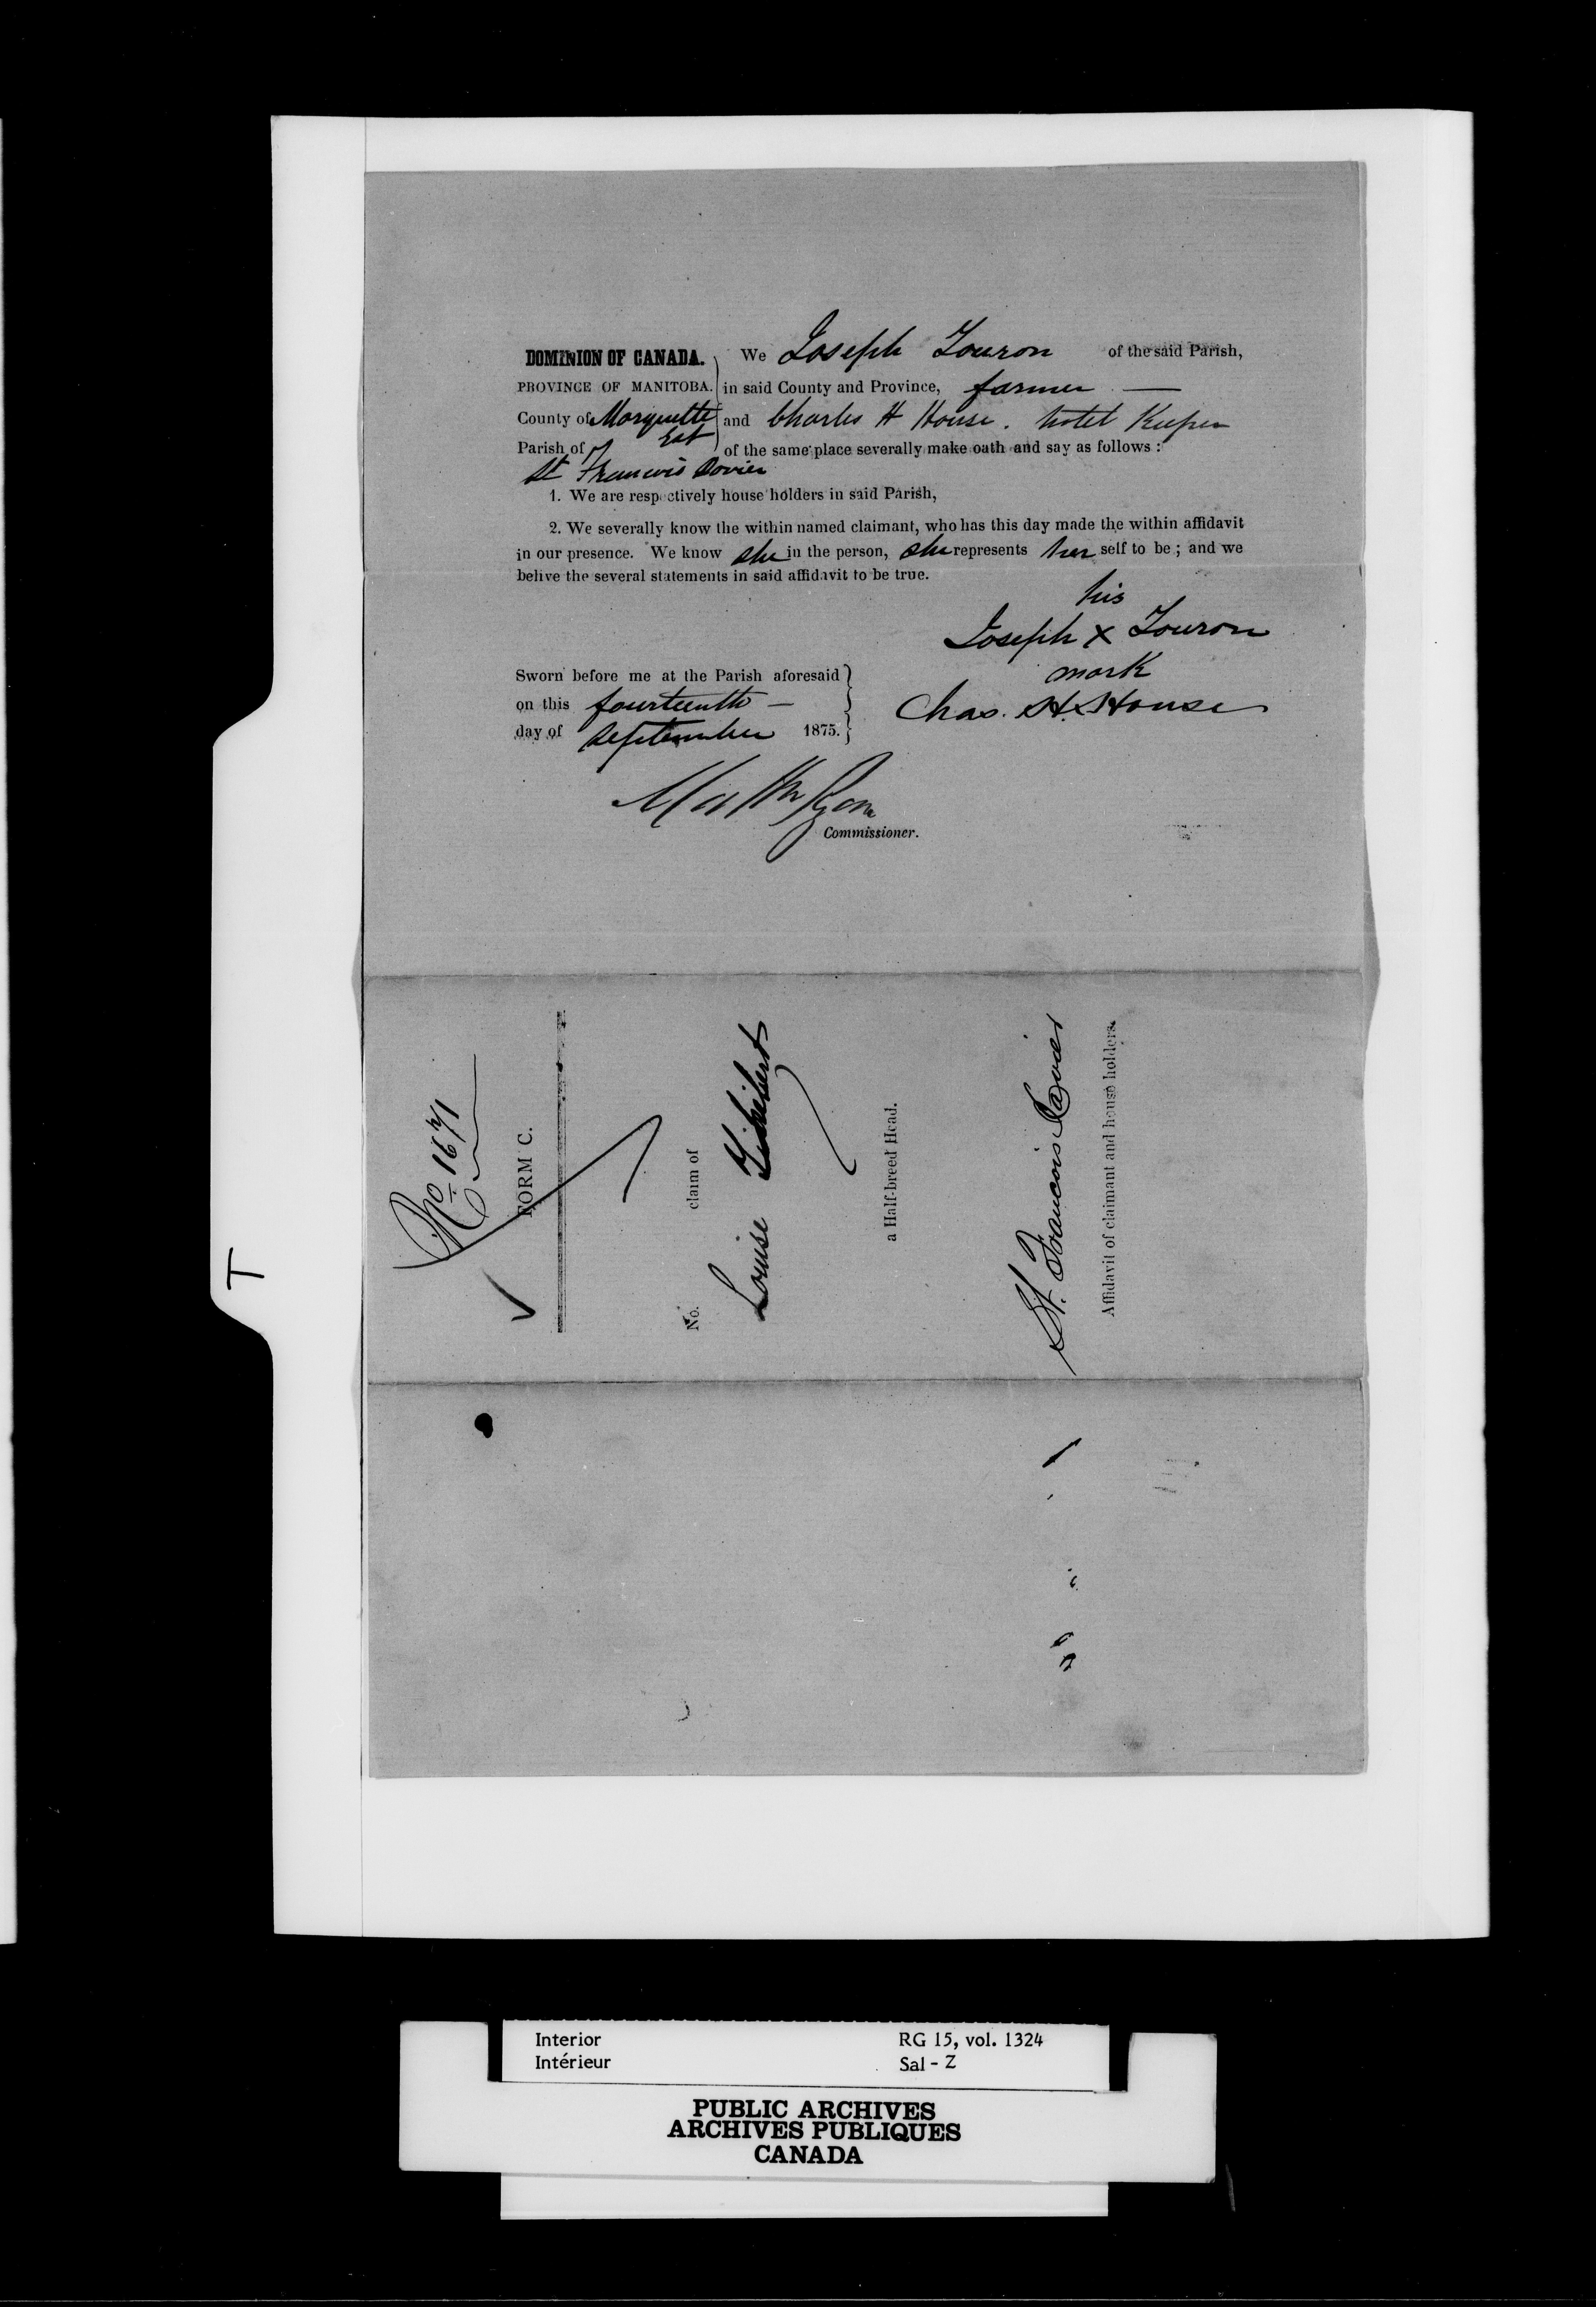 DOMINION OF CANADA. We Joseph Touron of the said Parish,
PROVINCE OF MANITOBA. in said County and Province, farmer —
County of Marquette East and Charles H House. hotel Keeper
Parish of St Francois Xavier of the same place severally make oath and say as follows :
1. We are respectively house holders in said Parish,
2. We severally know the within named claimant, who has this day made the within affidavit
in our presence. We know she in the person, she represents her self to be ; and we
belive the several statements in said affidavit to be true.
his
Joseph X Touron
mark
Chas. H. House
Sworn before me at the Parish aforesaid
on this fourteenth —
day of September 1875.
Matth Ryan
Commissioner.
No 1671
FORM C.
No. claim of
Louise
a Half-breed Head.
St. Francois Xavier
Affidavit of claimant and house holders.
T
Interior RG 15, vol. 1324
Intérieur Sal - Z
PUBLIC ARCHIVES
ARCHIVES PUBLIQUES
CANADA